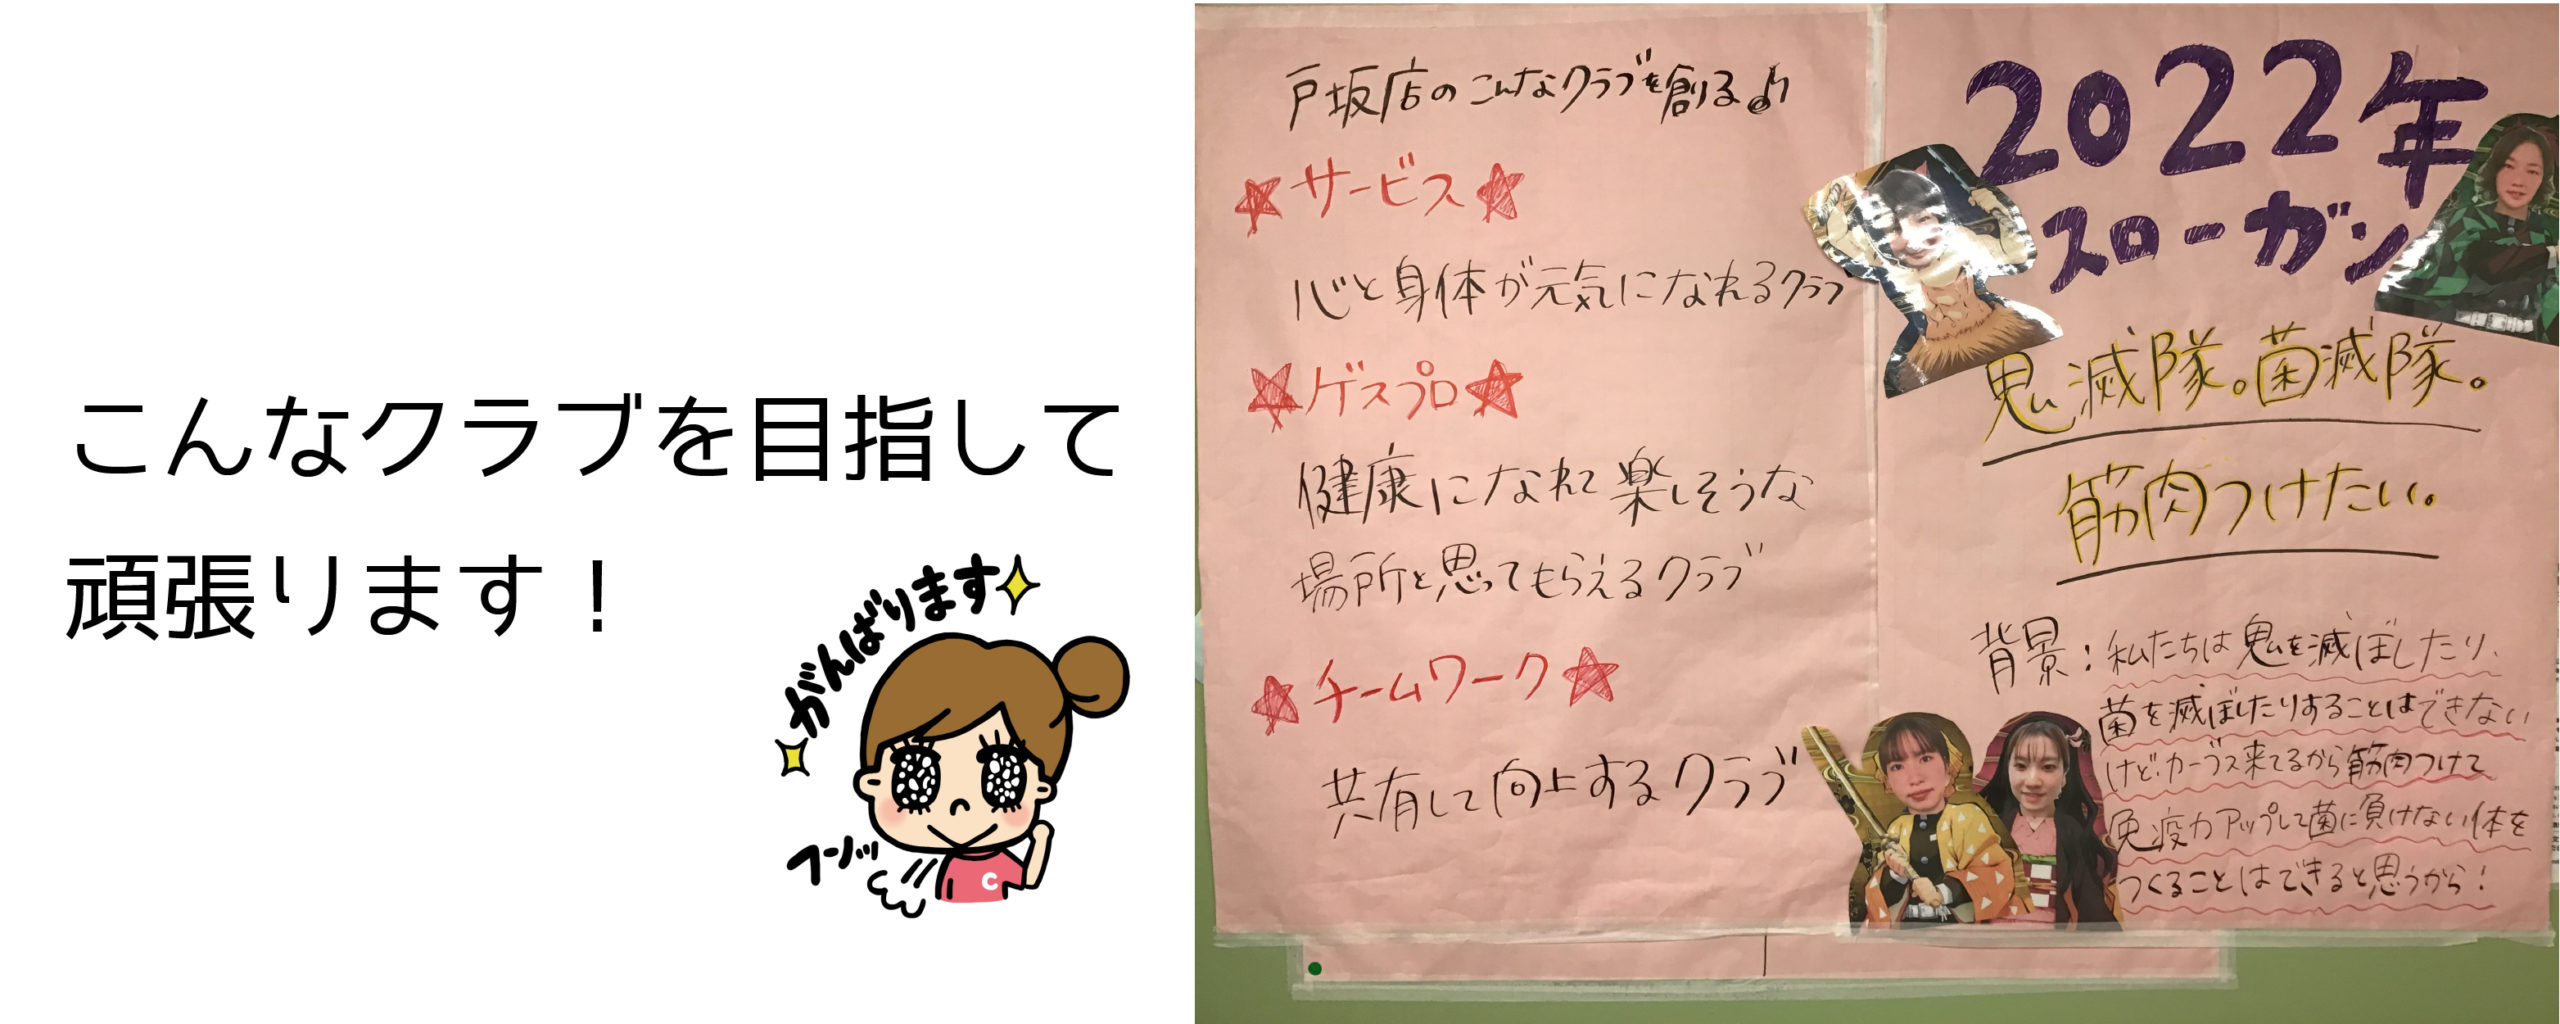 こんなクラブを目指して
頑張ります！
がんばります
フーンッ
C
戸坂店のこんなクラブを創る♪
★サービス★
心と身体が元気になれるクラブ
★ゲスプロ★
健康になれて楽しそうな
場所と思ってもらえるクラブ
★チームワーク★
共有して向上するクラブ
2022年
スローガン
鬼滅隊。菌滅隊。
筋肉つけたい。
背景：私たちは鬼を滅ぼしたり、
菌を滅ぼしたりすることはできない
けど、カーブス来てるから筋肉つけて
免疫力アップして菌に負けない体を
つくることはできると思うから！